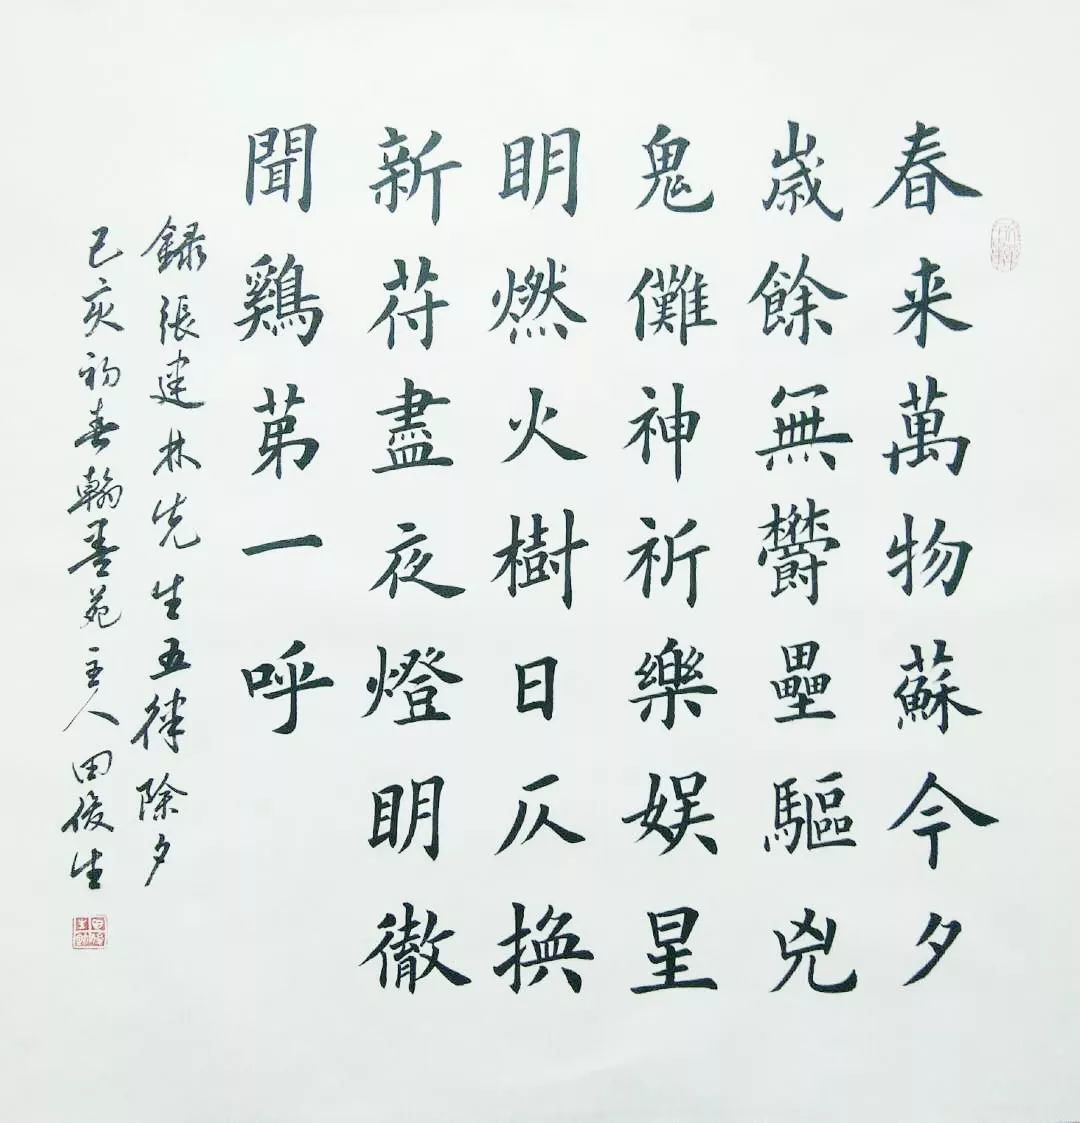 春来萬物蘇今夕
歲餘無欝壘驅兇
鬼儺神祈樂娱星
明燃火樹日仄換
新苻盡夜燈明徹
聞鷄苐一呼
録張建林先生五律除夕
己亥初春翰墨苑主人田俊生